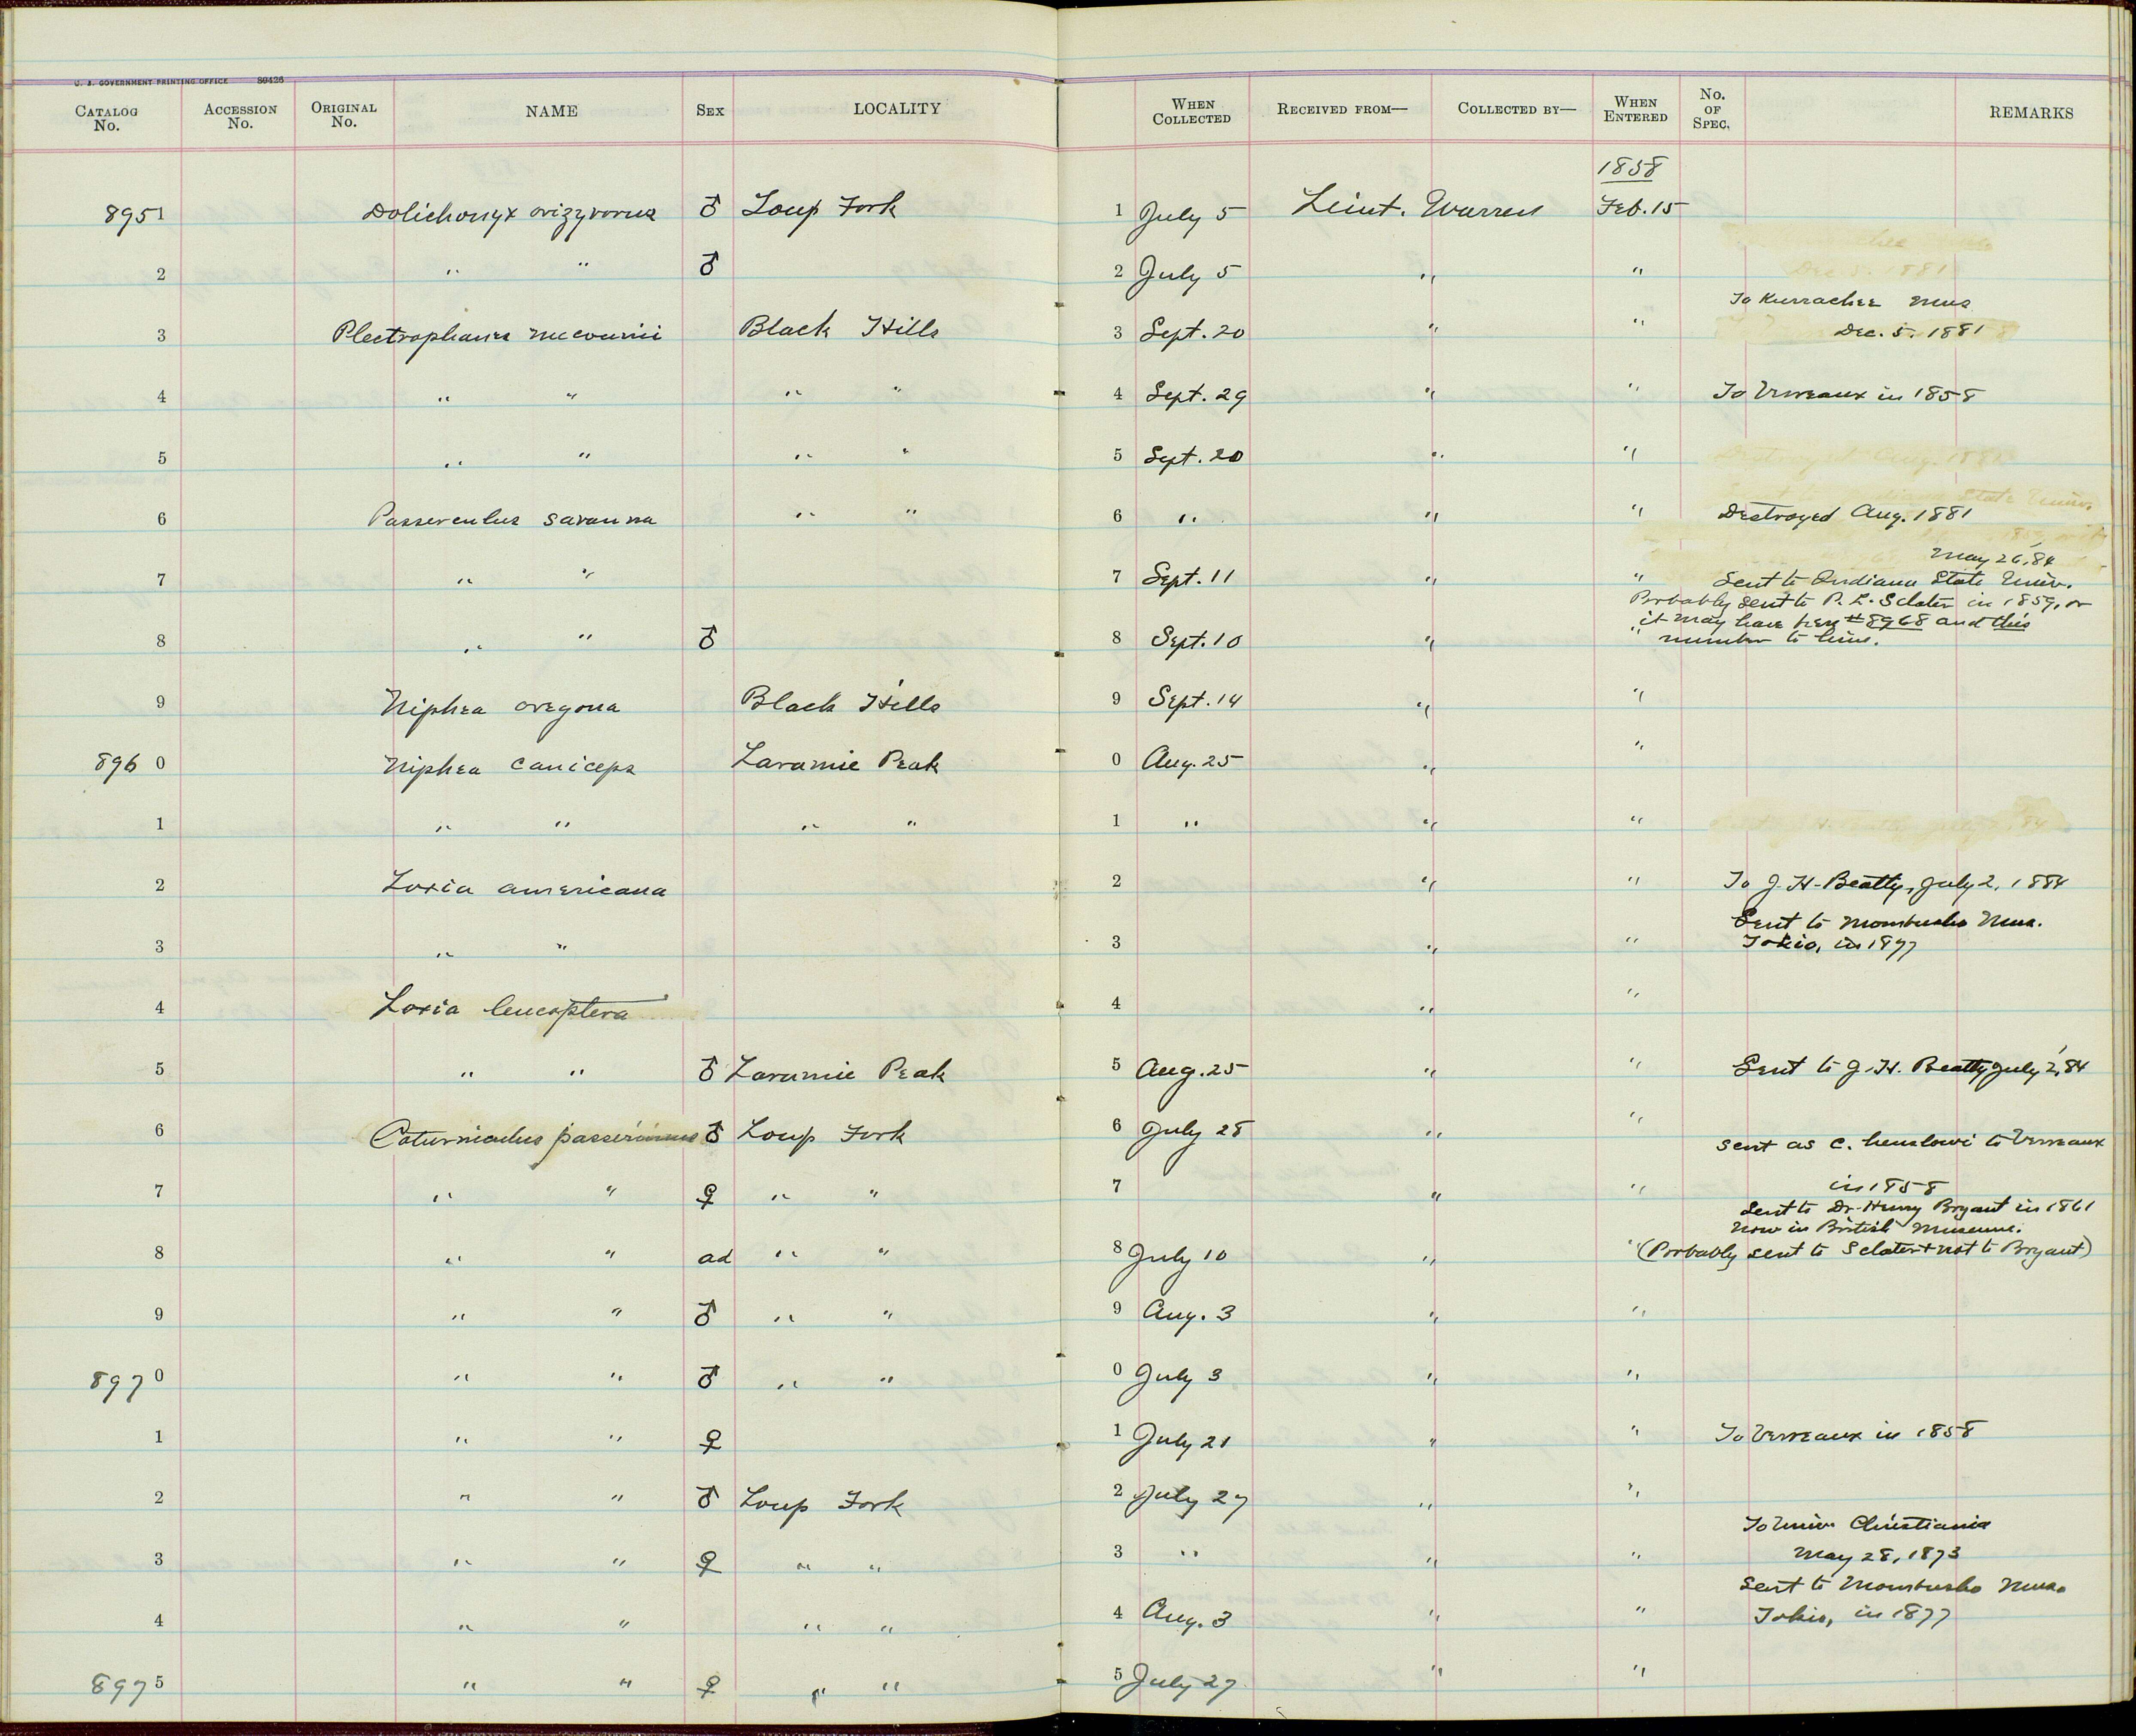 U. S. GOVERNMENT PRINTING OFFICE 89426
CATALOG No. ACCESSION No. ORIGINAL No. NAME SEX LOCALITY WHEN COLLECTED RECEIVED FROM— COLLECTED BY— WHEN ENTERED No. OF SPEC. REMARKS
1858
8951 Dolichonyx orizyvorus ♂ Loup Fork 1 July 5 Lieut. Warren Feb. 15
2 " " ♂ 2 July 5 " "
To Kurrachee Mus
3 Plectrophanes mccownii Black Hills 3 Sept. 20 " " Dec. 5. 1881
4 " " " " 4 Sept. 29 " " To Verreaux in 1858
5 " " " " 5 Sept. 20 " "
6 Passerculus savanna " " 6 " " " Destroyed Aug. 1881
May 26, '84
7 " " 7 Sept. 11 " " Sent to Indiana State Univ.
Probably sent to P. L. Sclater in 1859, or
it may have been #8968 and this
8 " " ♂ 8 Sept. 10 " " number to him.
9 Niphea oregona Black Hills 9 Sept. 14 " "
8960 Niphea caniceps Laramie Peak 0 Aug. 25 " "
1 " " " " 1 " " "
2 Loxia americana 2 " " To J. H. Beatty, July 2, 1884
Sent to Mombusho Mus.
3 " " 3 " " Tokio, in 1877
4 Loxia leucoptera 4 " "
5 " " ♂ Laramie Peak 5 Aug. 25 " " Sent to J. H. Beatty July 2, '84
6 Coturniculus passerinus ♂ Loup Fork 6 July 28 " " Sent as C. henslowi to Verreaux
7 " " ♀ " " 7 " " in 1858
Sent to Dr. Henry Bryant in 1861
Now in British Museum.
8 " " ad " " 8 July 10 " " (Probably sent to Sclater + not to Bryant)
9 " " ♂ " " 9 Aug. 3 " "
8970 " " ♂ " " 0 July 3 " "
1 " " ♀ 1 July 21 " " To Verreaux in 1858
2 " " ♂ Loup Fork 2 July 27 " "
To Univ. Christiania
3 " " ♀ " " 3 " " " May 28, 1873
Sent to Mombusho Mus.
4 " " " " 4 Aug. 3 " " Tokio, in 1877
8975 " " ♀ " " 5 July 27 " "